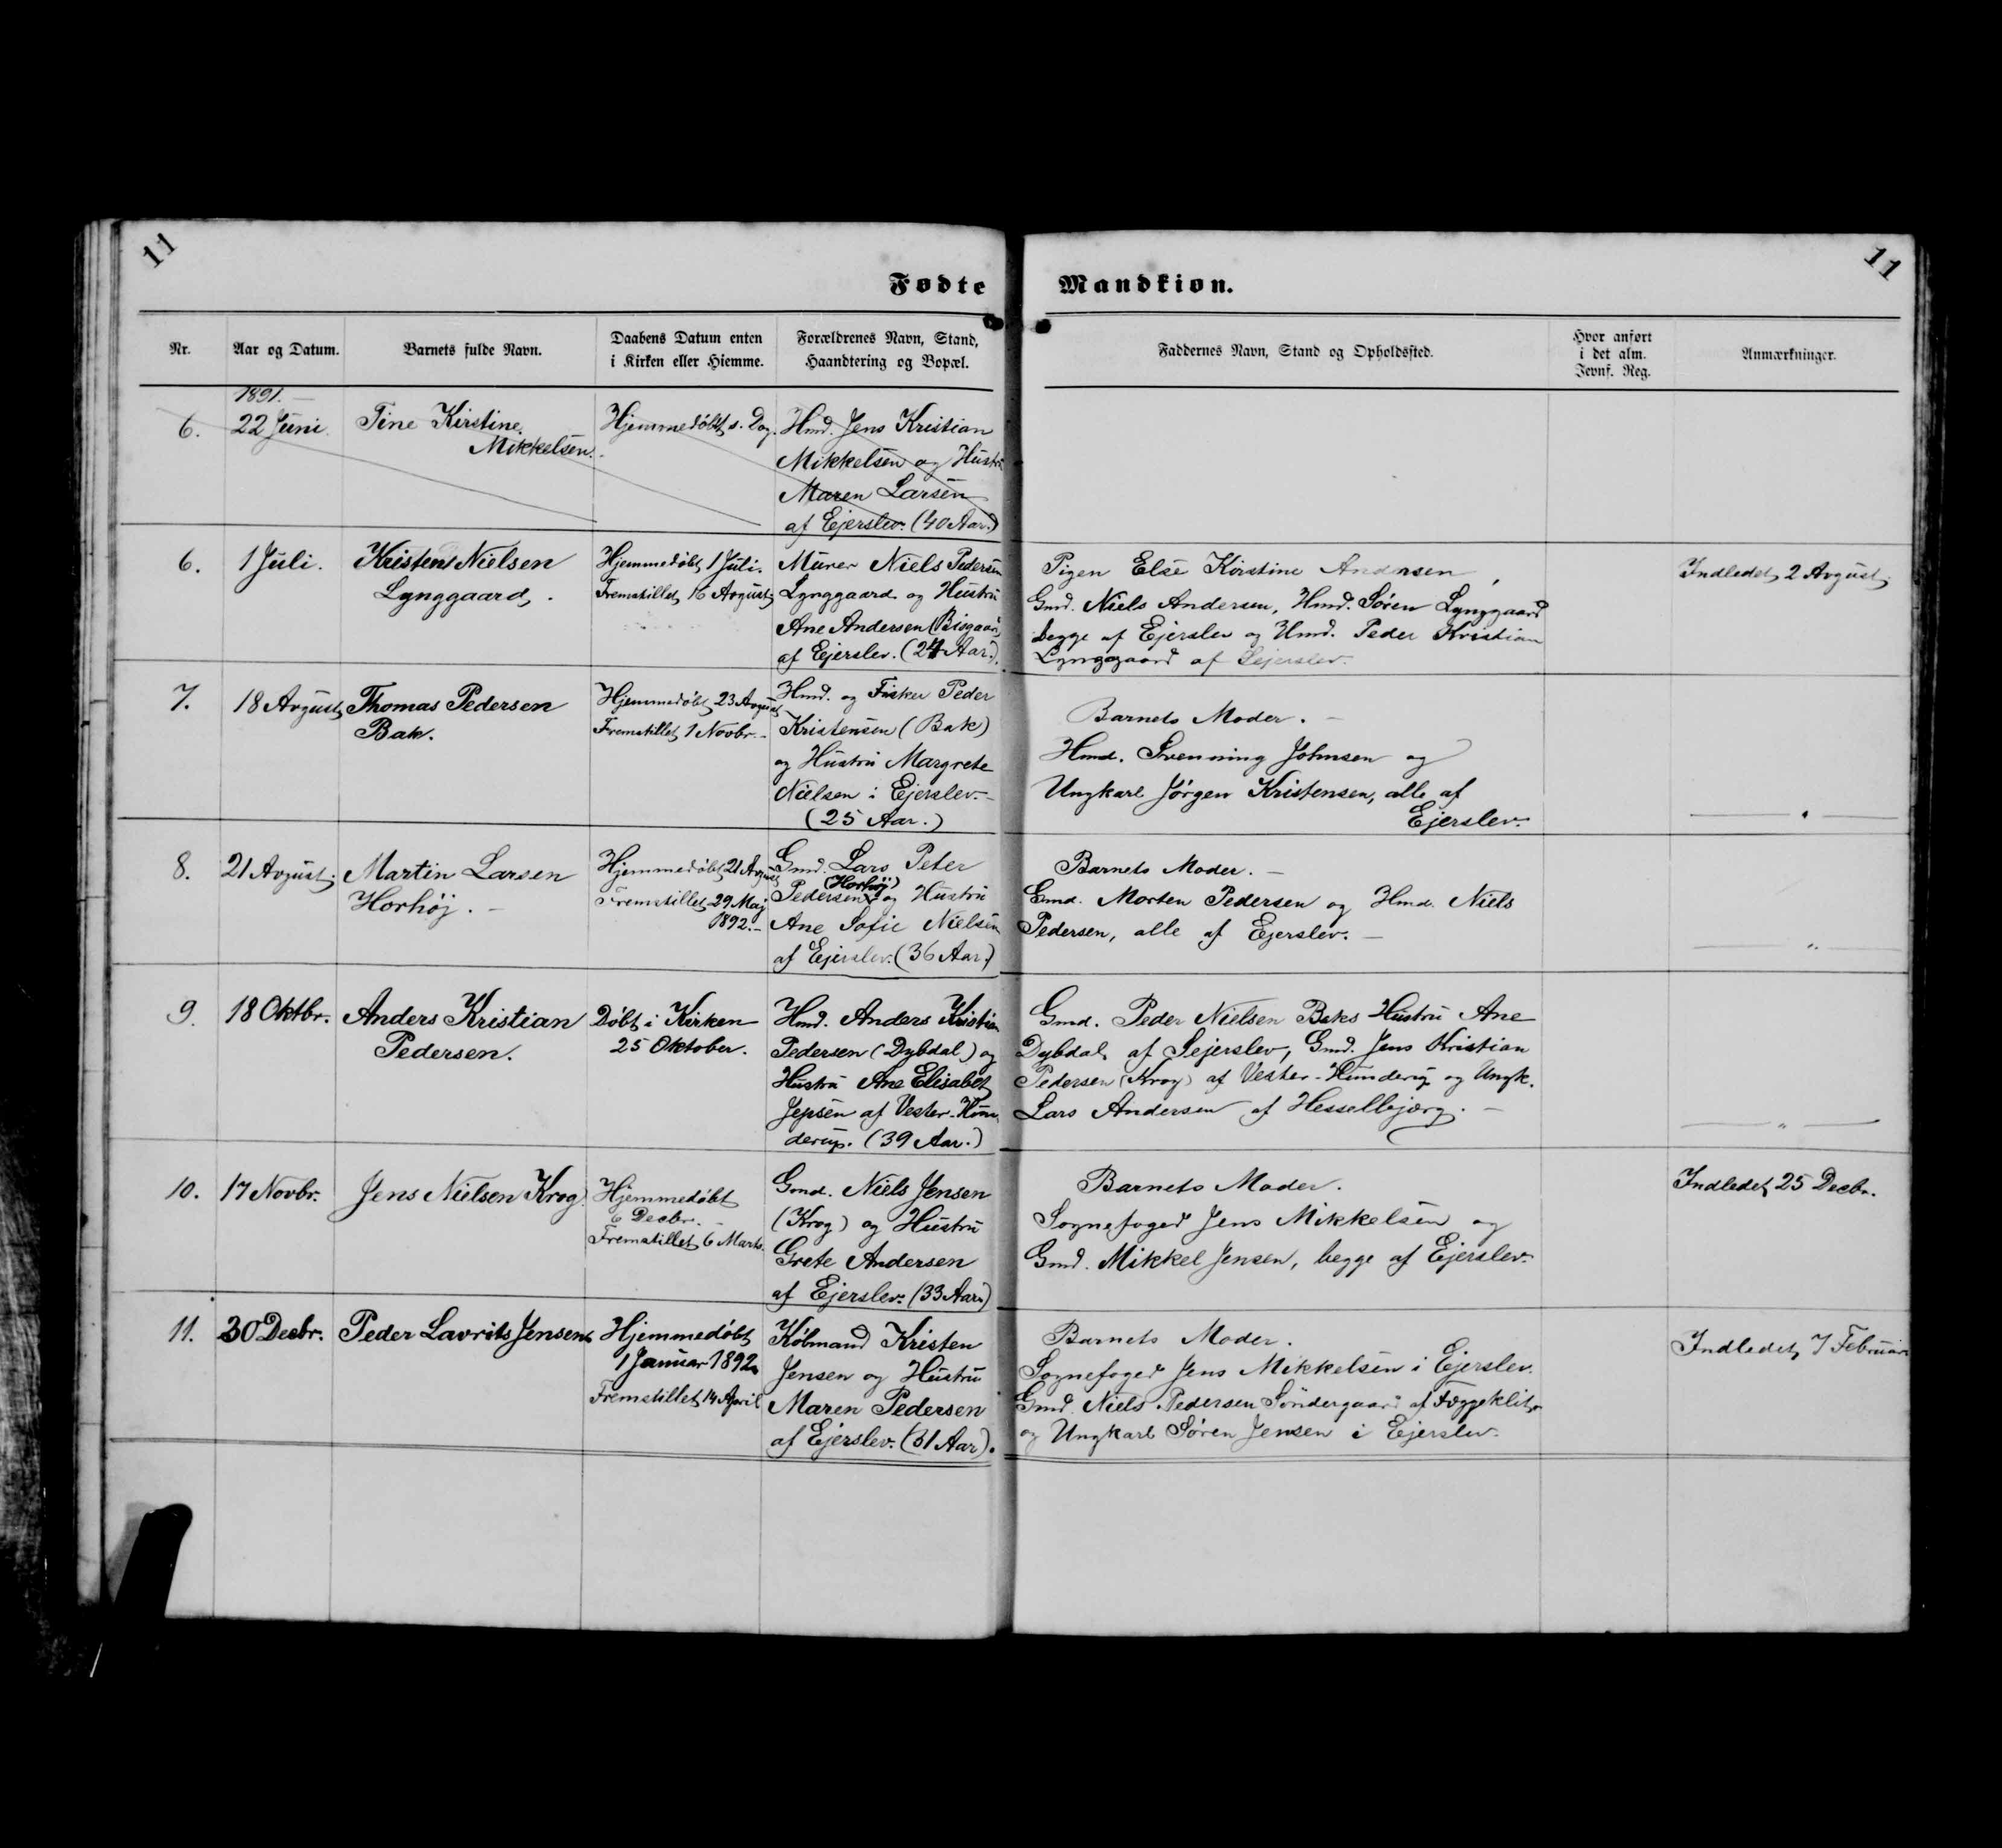 11
11
Fødte
Mandkiøn.
Nr.
Aar og Datum.
Barnets fulde Navn.
Daabens Datum enten
i Kirken eller Hiemme.
Forældrenes Navn, Stand,
Haandtering og Bopæl.
Faddernes Navn, Stand og Opholdssted.
Hvor anført
i det alm.
Jevnf. Reg.
Anmærkninger.
1891.
6.
22 Juni.
Tine Kirstine
Mikkelsen.
Hjemmedøbt s. Dag.
Hmd. Jens Kristian
Mikkelsen og Hustru
Maren Larsen
af Ejerslev. (40 Aar.)
6.
1 Juli.
Kristen Nielsen
Lynggaard.
Hjemmedøbt 1 Juli.
Fremstillet 16 Avgust.
Murer Niels Pedersen
Lynggaard og Hustru
Ane Andersen (Bisgaard)
af Ejerslev. (24 Aar.)
Pigen Else Kirstine Andersen,
Gmd. Niels Andersen, Hmd. Søren Lynggaard
begge af Ejerslev og Hmd. Peder Kristian
Lynggaard af Sejerslev.
Indledet 2 Avgust.
7.
18 Avgust
Thomas Pedersen
Bak.
Hjemmedøbt 23 Avgust
Fremstillet 1 Novbr.
Hmd. og Fisker Peder
Kristensen (Bak)
og Hustru Margrete
Nielsen i Ejerslev.
(25 Aar.)
Barnets Moder.
Hmd. Svenning Johnsen og
Ungkarl Jørgen Kristensen, alle af
Ejerslev.
8.
21 Avgust.
Martin Larsen
Horhøj.
Hjemmedøbt 21 Avgust
Fremstillet 29 Maj
1892.
Gmd. Lars Peter
(Horhøj)
Pedersen og Hustru
Ane Sofie Nielsen
af Ejerslev. (36 Aar.)
Barnets Moder.
Gmd. Morten Pedersen og Hmd. Niels
Pedersen, alle af Ejerslev.
9.
18 Oktbr.
Anders Kristian
Pedersen.
Døbt i Kirken
25 Oktober.
Hmd. Anders Kristian
Pedersen (Dybdal) og
Hustru Ane Elisabet
Jepsen af Vester-Hun-
derup. (39 Aar.)
Gmd. Peder Nielsen Baks Hustru Ane
Dybdal af Sejerslev, Gmd. Jens Kristian
Pedersen (Krog) af Vester-Hunderup og Ungk.
Lars Andersen af Hesselbjærg.
10.
17 Novbr.
Jens Nielsen Krog
Hjemmedøbt
6 Decbr.
Fremstillet 6 Marts.
Gmd. Niels Jensen
(Krog) og Hustru
Grete Andersen
af Ejerslev. (33 Aar.)
Barnets Moder.
Sognefoged Jens Mikkelsen og
Gmd. Mikkel Jensen, begge af Ejerslev.
Indledet 25 Decbr.
11.
30 Decbr.
Peder Lavrits Jensen
Hjemmedøbt
1 Januar 1892
Fremstillet 14 April
Købmand Kristen
Jensen og Hustru
Maren Pedersen
af Ejerslev. (31 Aar).
Barnets Moder.
Sognefoged Jens Mikkelsen i Ejerslev.
Gmd. Niels Pedersen Søndergaard af Fæggeklit
og Ungkarl Søren Jensen i Ejerslev.
Indledet 7 Februar